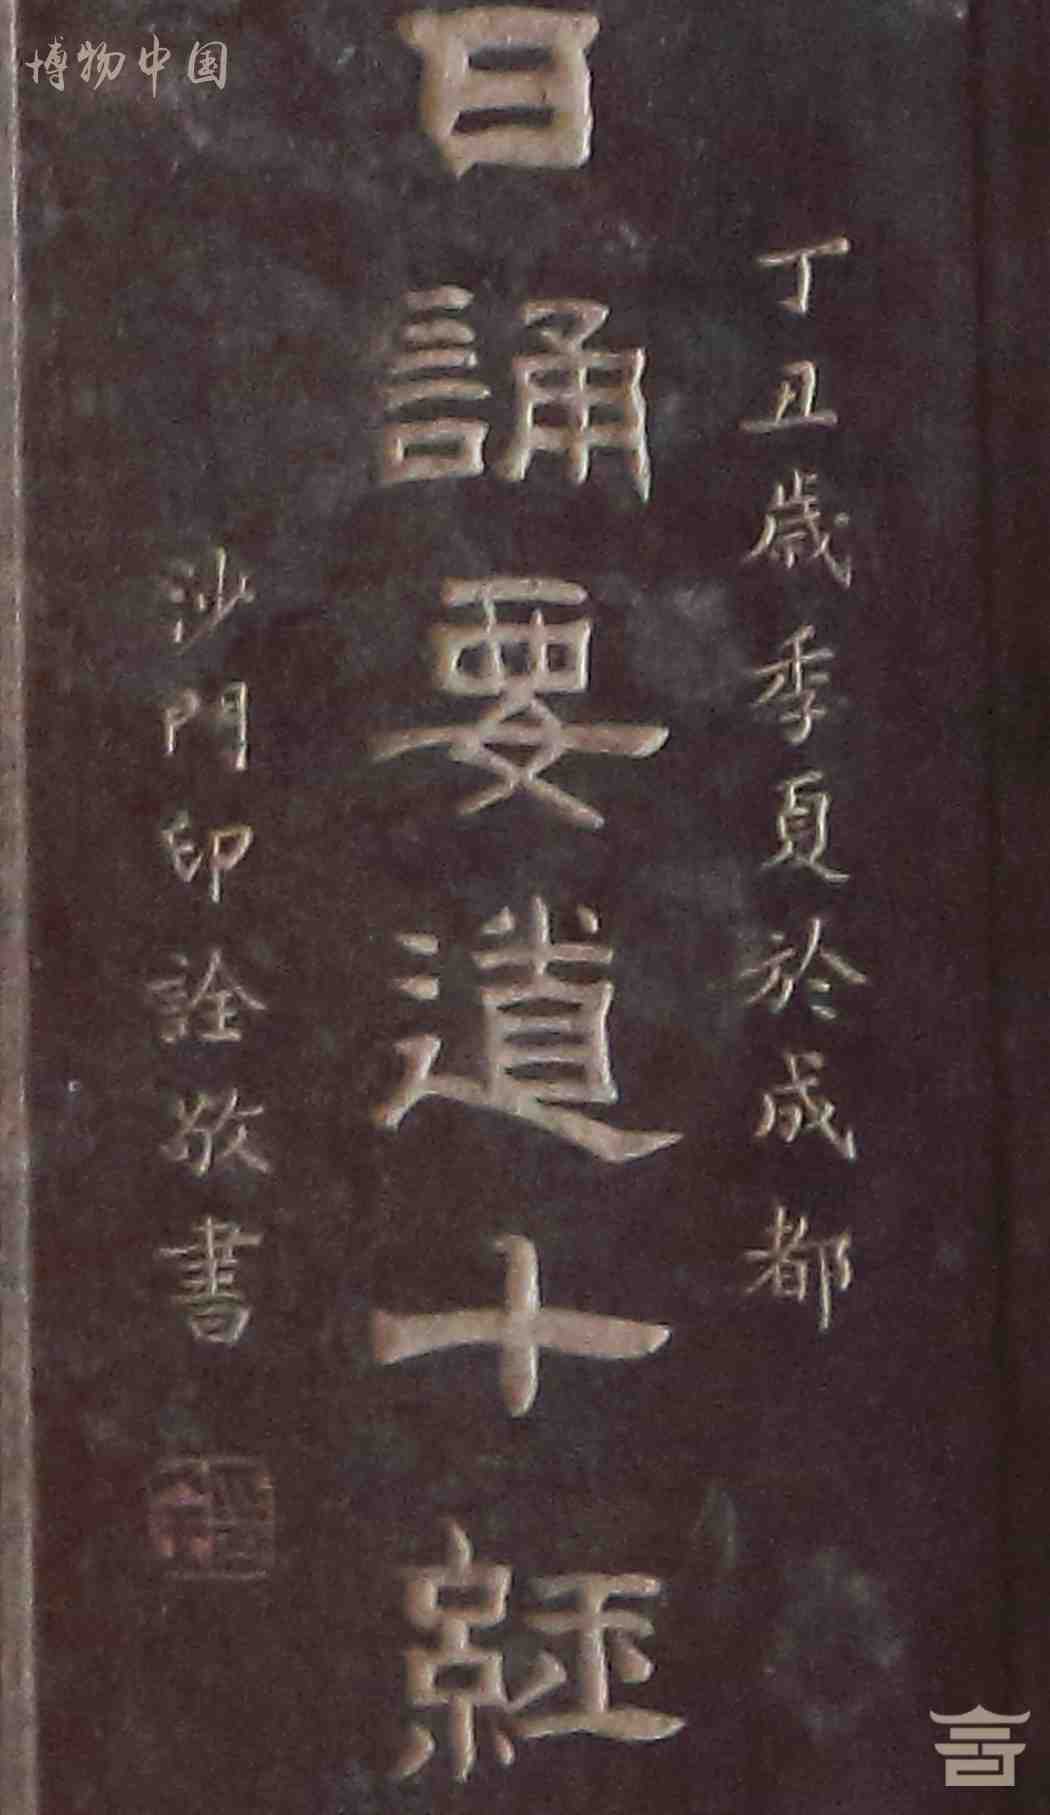 博物中国
丁丑歲季夏於成都
日誦要道十經
沙門印詮敬書